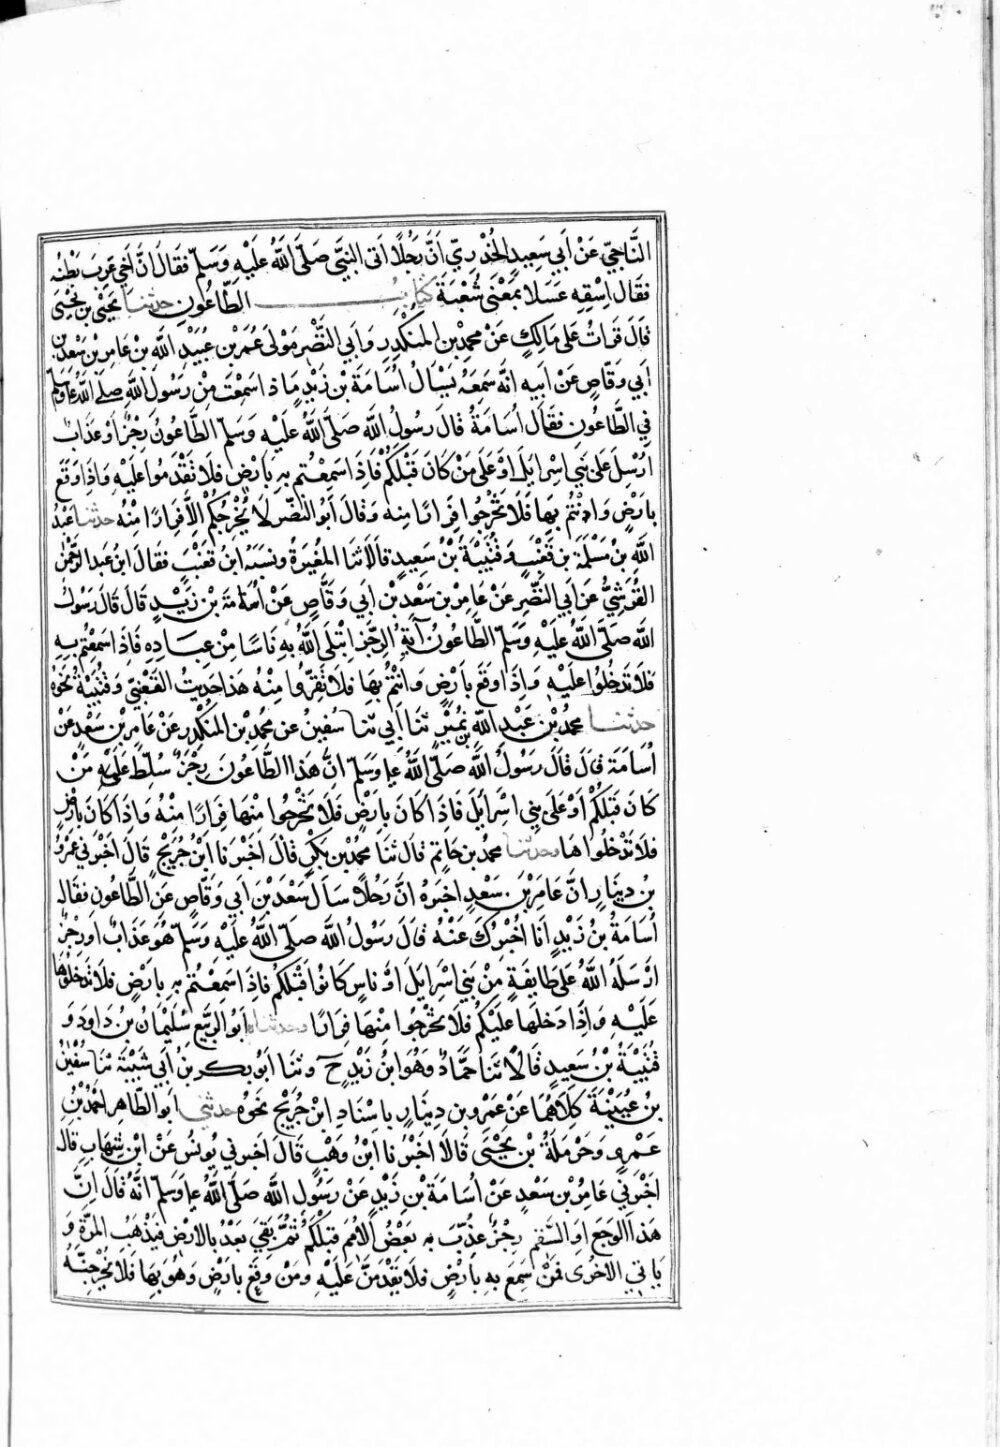 النَّاجِيِّ عَنْ أَبِي سَعِيدٍ الْخُدْرِيِّ أَنَّ رَجُلًا أَتَى النَّبِيَّ صَلَّى اللَّهُ عَلَيْهِ وَسَلَّمَ فَقَالَ إِنَّ أَخِي عَرِبَ بَطْنُهُ
فَقَالَ اسْقِهِ عَسَلًا بِمَعْنَى شُعْبَةَ كتاب الطَّاعُونِ حدثنا يَحْيَى بن يَحْيَى
قَالَ قَرَأْتُ عَلَى مَالِكٍ عَنْ مُحَمَّدِ بْنِ الْمُنْكَدِرِ وَأَبِي النَّضْرِ مَوْلَى عُمَرَ بْنِ عُبَيْدِ اللَّهِ بْنِ عَامِرِ بْنِ سَعْدِ بْنِ
أَبِي وَقَّاصٍ عَنْ أَبِيهِ أَنَّهُ سَمِعَهُ يَسْأَلُ أُسَامَةَ بْنَ زَيْدٍ مَاذَا سَمِعْتَ مِنْ رَسُولِ اللَّهِ صَلَّى اللَّهُ عليه وسلم
فِي الطَّاعُونِ فَقَالَ أُسَامَةُ قَالَ رَسُولُ اللَّهِ صَلَّى اللَّهُ عَلَيْهِ وَسَلَّمَ الطَّاعُونُ رِجْزٌ أَوْ عَذَابٌ
أُرْسِلَ عَلَى بَنِي إِسْرَائِيلَ أَوْ عَلَى مَنْ كَانَ قَبْلَكُمْ فَإِذَا سَمِعْتُمْ بِهِ بِأَرْضٍ فَلَا تَقْدَمُوا عَلَيْهِ وَإِذَا وَقَعَ
بِأَرْضٍ وَأَنْتُمْ بِهَا فَلَا تَخْرُجُوا فِرَارًا مِنْهُ وَقَالَ أَبُو النَّضْرِ لَا يُخْرِجُكُمْ إِلَّا فِرَارًا مِنْهُ حدثنا عَبْدُ
اللَّهِ بْنُ مَسْلَمَةَ بْنِ قَعْنَبٍ وَقُتَيْبَةُ بْنُ سَعِيدٍ قَالَا ثَنَا الْمُغِيرَةُ وَنَسَبَهُ ابْنُ قَعْنَبٍ فَقَالَ ابْنُ عَبْدِ الرَّحْمَنِ
الْقُرَشِيُّ عَنْ أَبِي النَّضْرِ عَنْ عَامِرِ بْنِ سَعْدِ بْنِ أَبِي وَقَّاصٍ عَنْ أُسَامَةَ بْنِ زَيْدٍ قَالَ قَالَ رَسُولُ
اللَّهِ صَلَّى اللَّهُ عَلَيْهِ وَسَلَّمَ الطَّاعُونُ آيَةُ الرِّجْزِ ابْتَلَى اللَّهُ بِهِ نَاسًا مِنْ عِبَادِهِ فَإِذَا سَمِعْتُمْ بِهِ
فَلَا تَدْخُلُوا عَلَيْهِ وَإِذَا وَقَعَ بِأَرْضٍ وَأَنْتُمْ بِهَا فَلَا تَفِرُّوا مِنْهُ هَذَا حَدِيثُ الْقَعْنَبِيِّ وَقُتَيْبَةُ نَحْوَهُ
حدثنا مُحَمَّدُ بْنُ عَبْدِ اللَّهِ بْنِ نُمَيْرٍ ثَنَا أَبِي ثَنَا سُفْيَنُ عَنْ مُحَمَّدِ بْنِ الْمُنْكَدِرِ عَنْ عَامِرِ بْنِ سَعْدٍ عَنْ
أُسَامَةَ قَالَ قَالَ رَسُولُ اللَّهِ صَلَّى اللَّهُ علـ وَسَلَّمَ إِنَّ هَذَا الطَّاعُونَ رِجْزٌ سُلِّطَ عَلَى مَنْ
كَانَ قَبْلَكُمْ أَوْ عَلَى بَنِي إِسْرَائِيلَ فَإِذَا كَانَ بِأَرْضٍ فَلَا تَخْرُجُوا مِنْهَا فِرَارًا مِنْهُ وَإِذَا كَانَ بِأَرْضٍ
فَلَا تَدْخُلُوهَا وحدثنا مُحَمَّدُ بْنُ حَاتِمٍ قَالَ ثَنَا مُحَمَّدُ بْنُ بَكْرٍ قَالَ أَخْبَرَنَا ابْنُ جُرَيْجٍ قَالَ أَخْبَرَنِي عَمْرُو
بْنُ دِينَارٍ أَنَّ عَامِرَ بْنَ سَعْدٍ أَخْبَرَهُ أَنَّ رَجُلًا سَأَلَ سَعْدَ بْنَ أَبِي وَقَّاصٍ عَنِ الطَّاعُونِ فَقَالَ
أُسَامَةُ بْنُ زَيْدٍ أَنَا أُخْبِرُكَ عَنْهُ قَالَ رَسُولُ اللَّهِ صَلَّى اللَّهُ عَلَيْهِ وَسَلَّمَ هُوَ عَذَابٌ أَوْ رِجْزٌ
أَرْسَلَهُ اللَّهُ عَلَى طَائِفَةٍ مِنْ بَنِي إِسْرَائِيلَ أَوْ نَاسٍ كَانُوا قَبْلَكُمْ فَإِذَا سَمِعْتُمْ بِهِ بِأَرْضٍ فَلَا تَدْخُلُوهَا
عَلَيْهِ وَإِذَا دَخَلَهَا عَلَيْكُمْ فَلَا تَخْرُجُوا مِنْهَا فِرَارًا وحدثناه أَبُو الرَّبِيعِ سُلَيْمَانُ بْنُ دَاوُدَ وَ
قُتَيْبَةُ بْنُ سَعِيدٍ قَالَا ثَنَا حَمَّادٌ وَهُوَ ابْنُ زَيْدٍ ح وَثَنَا أَبُو بَكْرِ بْنُ أَبِي شَيْبَةَ ثَنَا سُفْيَنُ
بْنُ عُيَيْنَةَ كِلَاهُمَا عَنْ عَمْرِو بْنِ دِينَارٍ بِإِسْنَادِ ابْنِ جُرَيْجٍ نَحْوَهُ حدثني أَبُو الطَّاهِرِ أَحْمَدُ بْنُ
عَمْرٍو وَحَرْمَلَةُ بْنُ يَحْيَى قَالَا أَخْبَرَنَا ابْنُ وَهْبٍ قَالَ أَخْبَرَنِي يُونُسُ عَنِ ابْنِ شِهَابٍ قَالَ
أَخْبَرَنِي عَامِرُ بْنُ سَعْدٍ عَنْ أُسَامَةَ بْنِ زَيْدٍ عَنْ رَسُولِ اللَّهِ صَلَّى اللَّهُ علـ وَسَلَّمَ أَنَّهُ قَالَ إِنَّ
هَذَا الْوَجَعَ أَوِ السَّقَمَ رِجْزٌ عُذِّبَ بِهِ بَعْضُ الْأُمَمِ قَبْلَكُمْ ثُمَّ بَقِيَ بَعْدُ بِالْأَرْضِ فَيَذْهَبُ الْمَرَّةَ وَ
يَأْتِي الْأُخْرَى فَمَنْ سَمِعَ بِهِ بِأَرْضٍ فَلَا يَقْدَمَنَّ عَلَيْهِ وَمَنْ وَقَعَ بِأَرْضٍ وَهُوَ بِهَا فَلَا يُخْرِجَنَّهُ